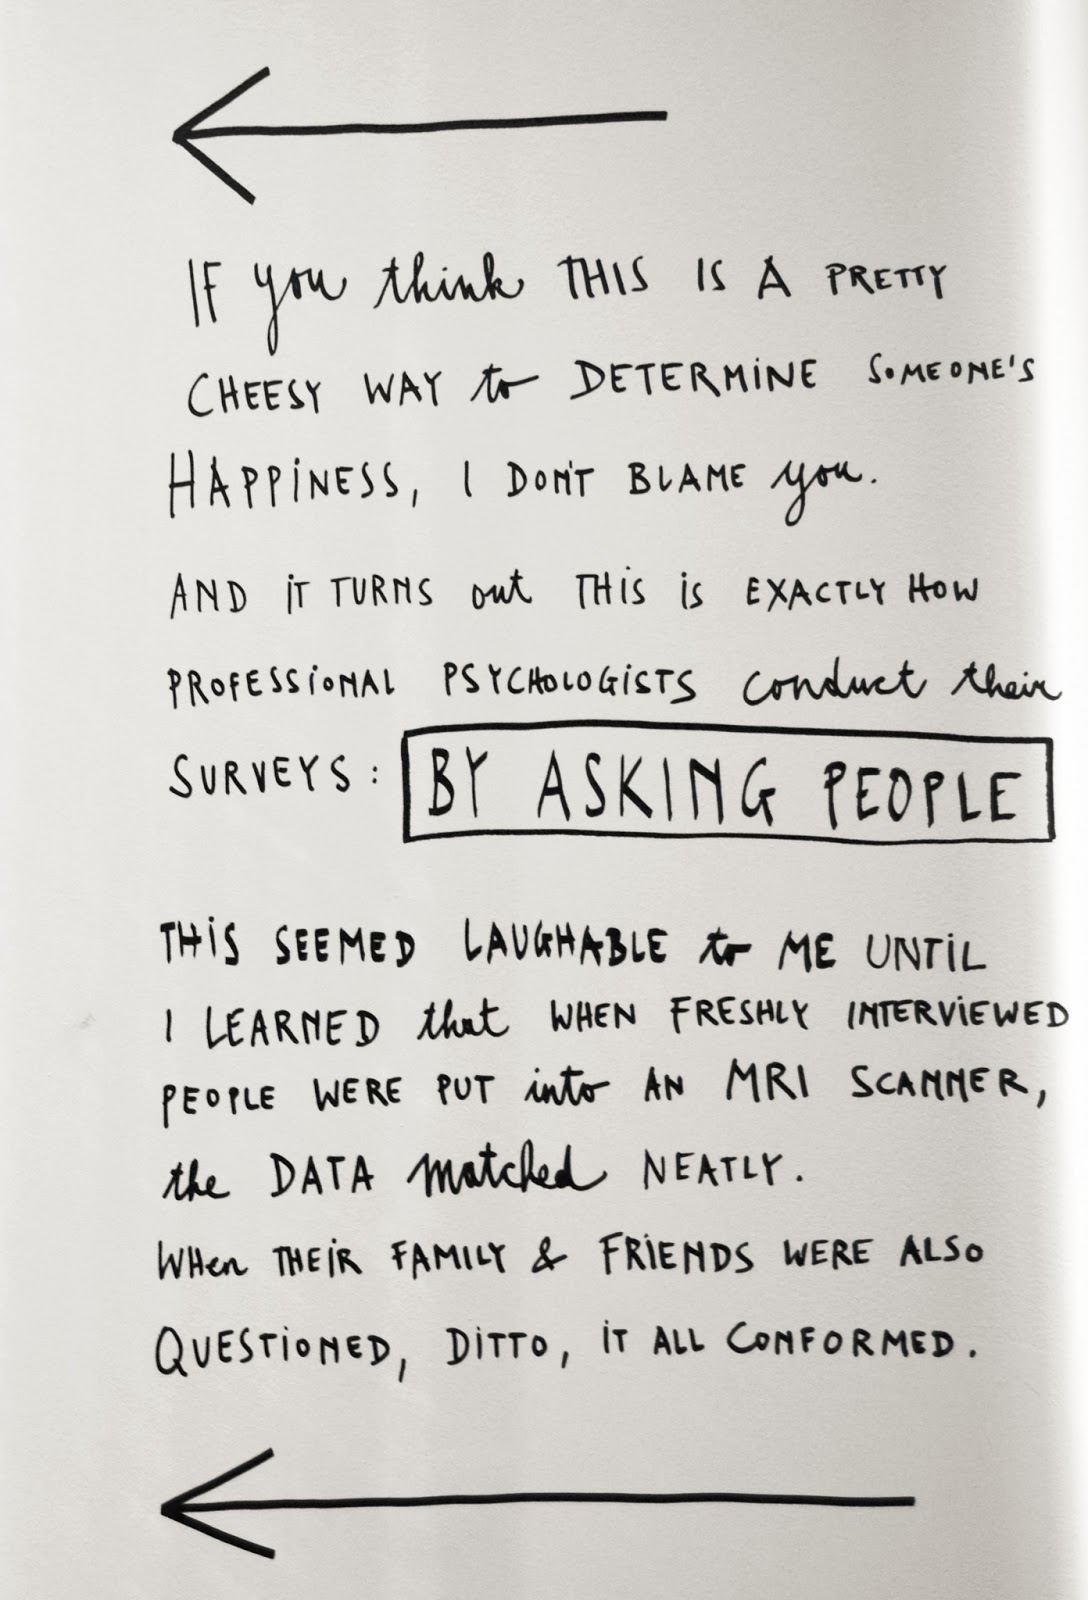 IF you think THIS IS A PRETTY
CHEESY WAY to DETERMINE SOMEONE'S
HAPPINESS, I DON'T BLAME you.
AND iT TURNS out THiS iS EXACTLY HOW
PROFESSIONAL PSYCHOLOGISTS conduct their
SURVEYS: BY ASKING PEOPLE
THiS SEEMED LAUGHABLE to ME UNTiL
I LEARNED that WHEN FRESHLY INTERViEWED
PEOPLE WERE PUT into AN MRI SCANNER,
the DATA matched NEATLY.
WHen THEiR FAMILY & FRiENDS WERE ALSO
QUESTiONED, DiTTO, iT ALL CONFORMED.